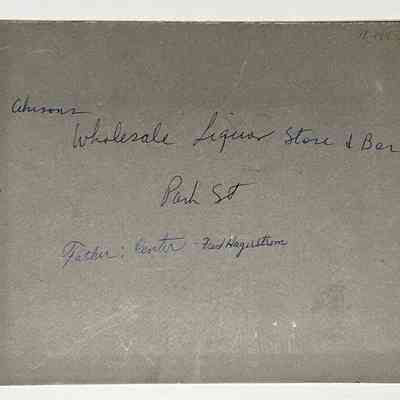 Wholesale Liquor Store & Bar
Park St
Father: Center - Fred Hagerstrom